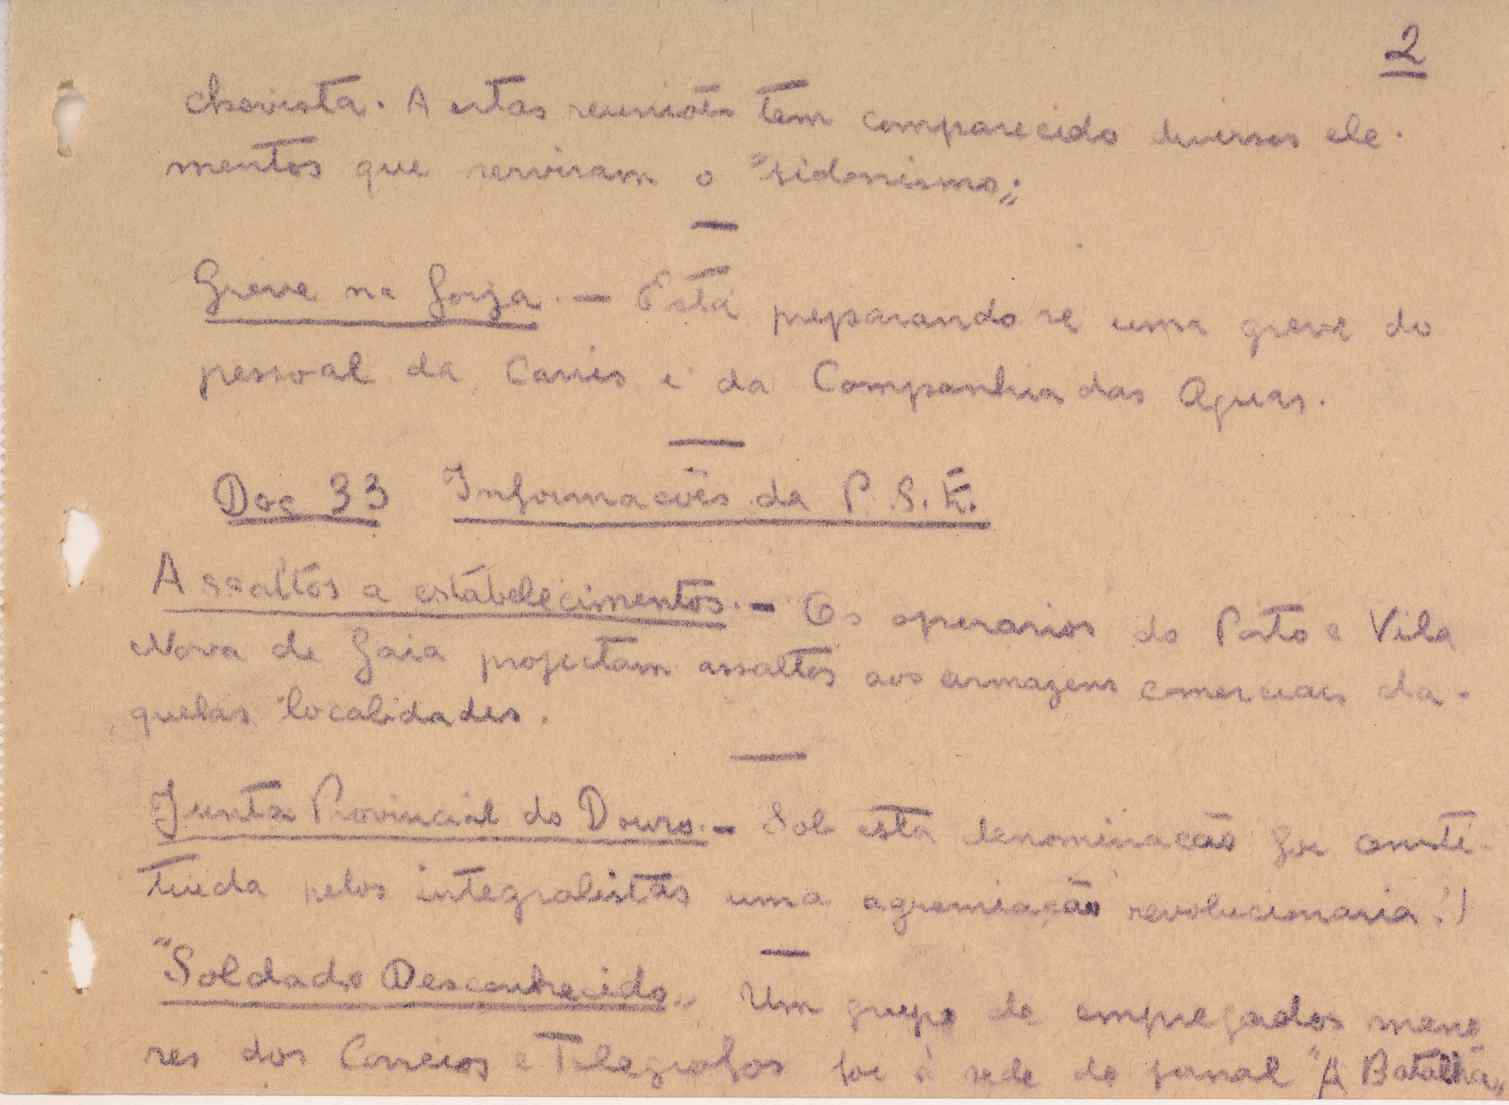 2
chevista. A estas reuniões tem comparecido diversos ele-
mentos que serviram o "sidonismo".
Greve na forja. — Está preparando se uma greve do
pessoal da Carris e da Companhia das Aguas.
Doc 33 Informacões da P. S. E.
Assaltos a estabelecimentos. — Os operarios do Porto e Vila
Nova de Gaia projectam assaltos aos armazens comerciais da-
quelas localidades.
Junta Provincial do Douro. — Sob esta denominacão foi consti-
tuida pelos integralistas uma agremiação revolucionaria (!)
"Soldado Desconhecido" Um grupo de empregados meno
res dos Correios e Telegrafos foi à sede do jornal "A Batalha"